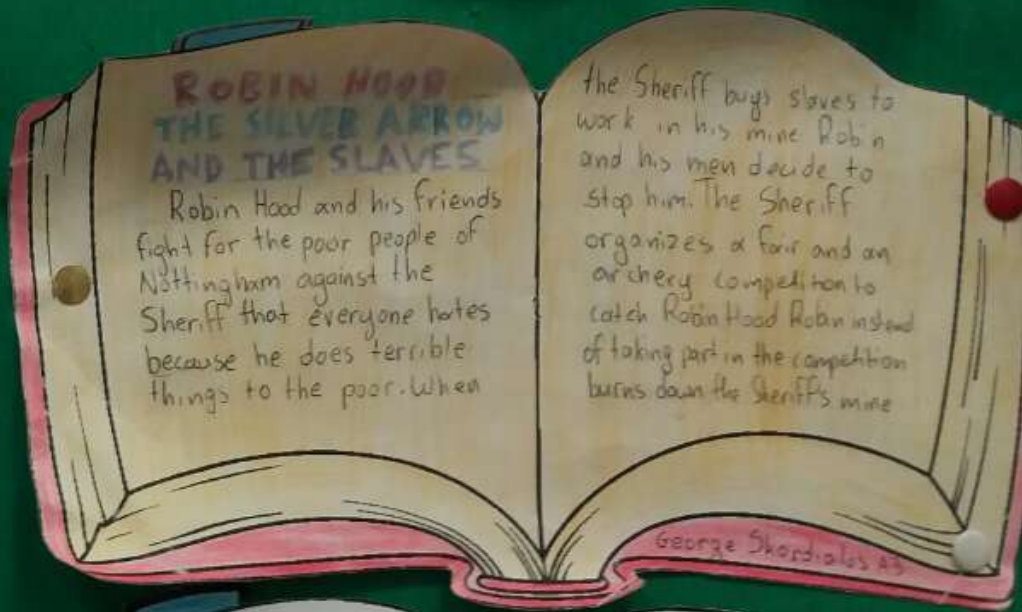 ROBIN HOOD
THE SILVER ARROW
AND THE SLAVES
Robin Hood and his friends
fight for the poor people of
Nottingham against the
Sheriff that everyone hates
because he does terrible
things to the poor. When
the Sheriff buys slaves to
work in his mine Robin
and his men decide to
stop him. The Sheriff
organizes a fair and an
archery competition to
catch Robin Hood Robin instead
of taking part in the competition
burns down the Sheriff's mine
George Skordialos A3